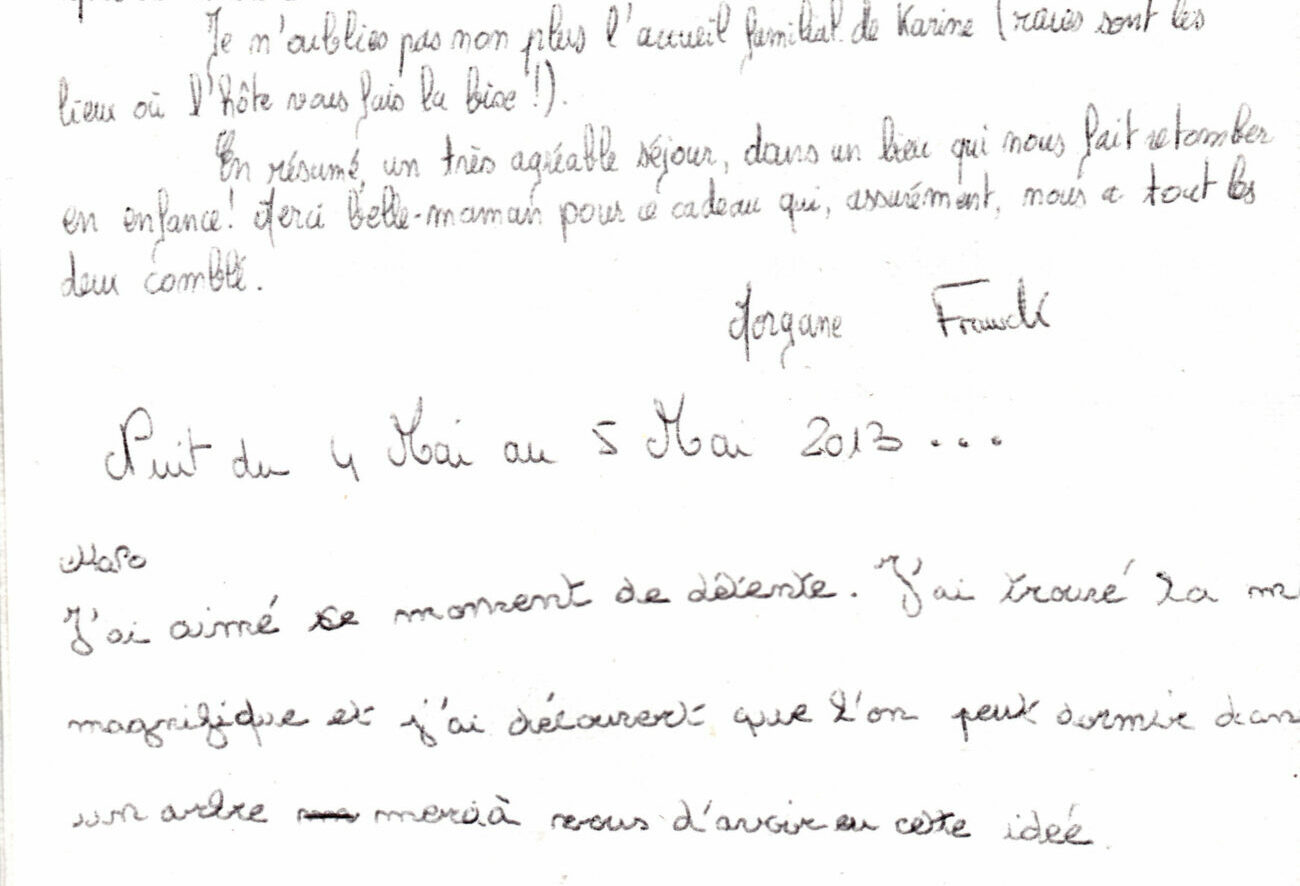 Je n'oublies pas non plus l'accueil familial de Karine (rares sont les
lieu où l'hôte vous fais la bise !).
En résumé, un très agréable séjour, dans un lieu qui nous fait retomber
en enfance! Merci belle-maman pour ce cadeau qui, assurément, nous a tout les
deux comblé.
Morgane Franck
Nuit du 4 Mai au 5 Mai 2013...
J'ai aimé ce moment de détente. J'ai trouvé la m
magnifique et j'ai découvert que l'on peut dormir dans
un arbre merci à vous d'avoir eu cette idée.